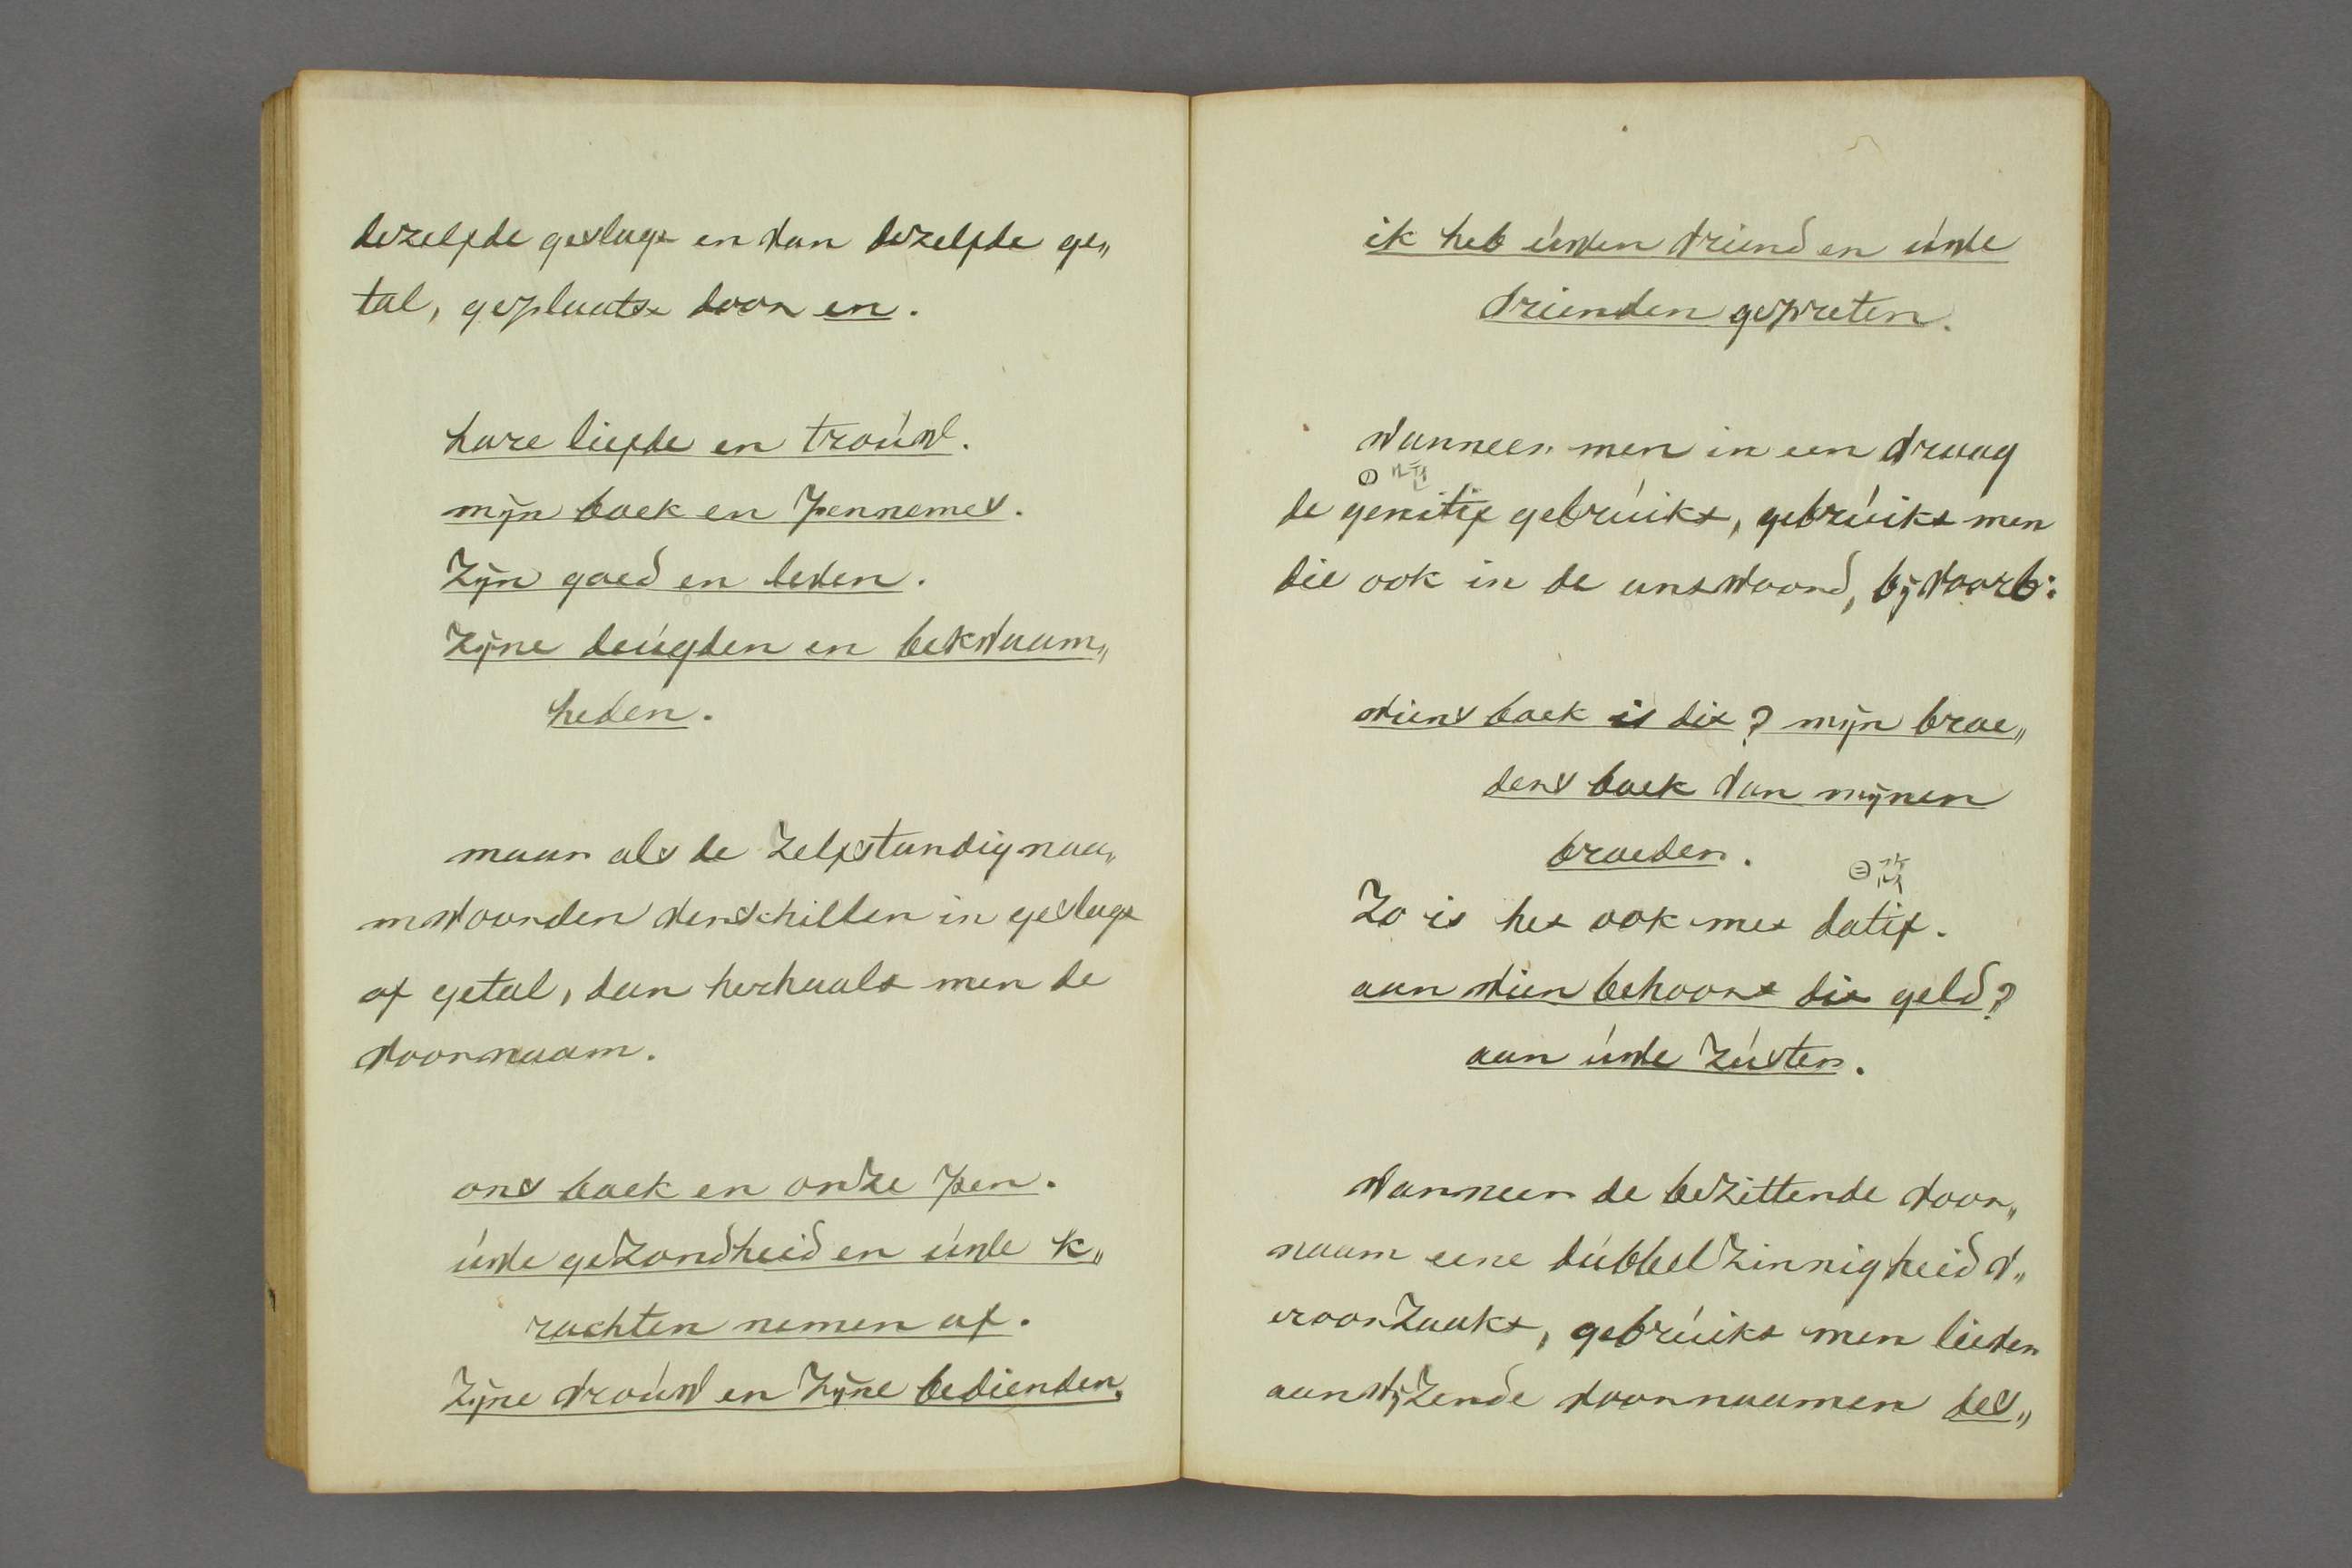 dezelfde geslagt en van dezelfde ge„
tal, geplaatst door en.
hare liefde en trouw.
mijn boek en pennemes.
Zijn goed en leven.
Zijne deugden en bekwaam„
heden.
maar als de Zelfstandig naa„
mwoorden verschillen in geslagt
of getal, dan herhaalt men de
voornaam.
ons boek en onze pen.
uwe gezondheid en uwe k„
rachten nemen af.
Zijne vrouw en Zijne bedienden.
ik heb uwen vriend en uwe
vrienden gesproken.
wanneer men in een vraag
de genitif gebruikt, gebruikt men
die ook in de antwoord, bij voorb:
wiens boek is dit? mijn broe„
ders boek van mijnen
broeder.
Zo is het ook met datif.
aan wien behoort dit geld?
aan uwe Zuster.
Wanneer de bezittende voor„
naam eene dubbelZinnigheid v„
eroorZaakt, gebruikt men liever
aanwijZende voornaamen des„